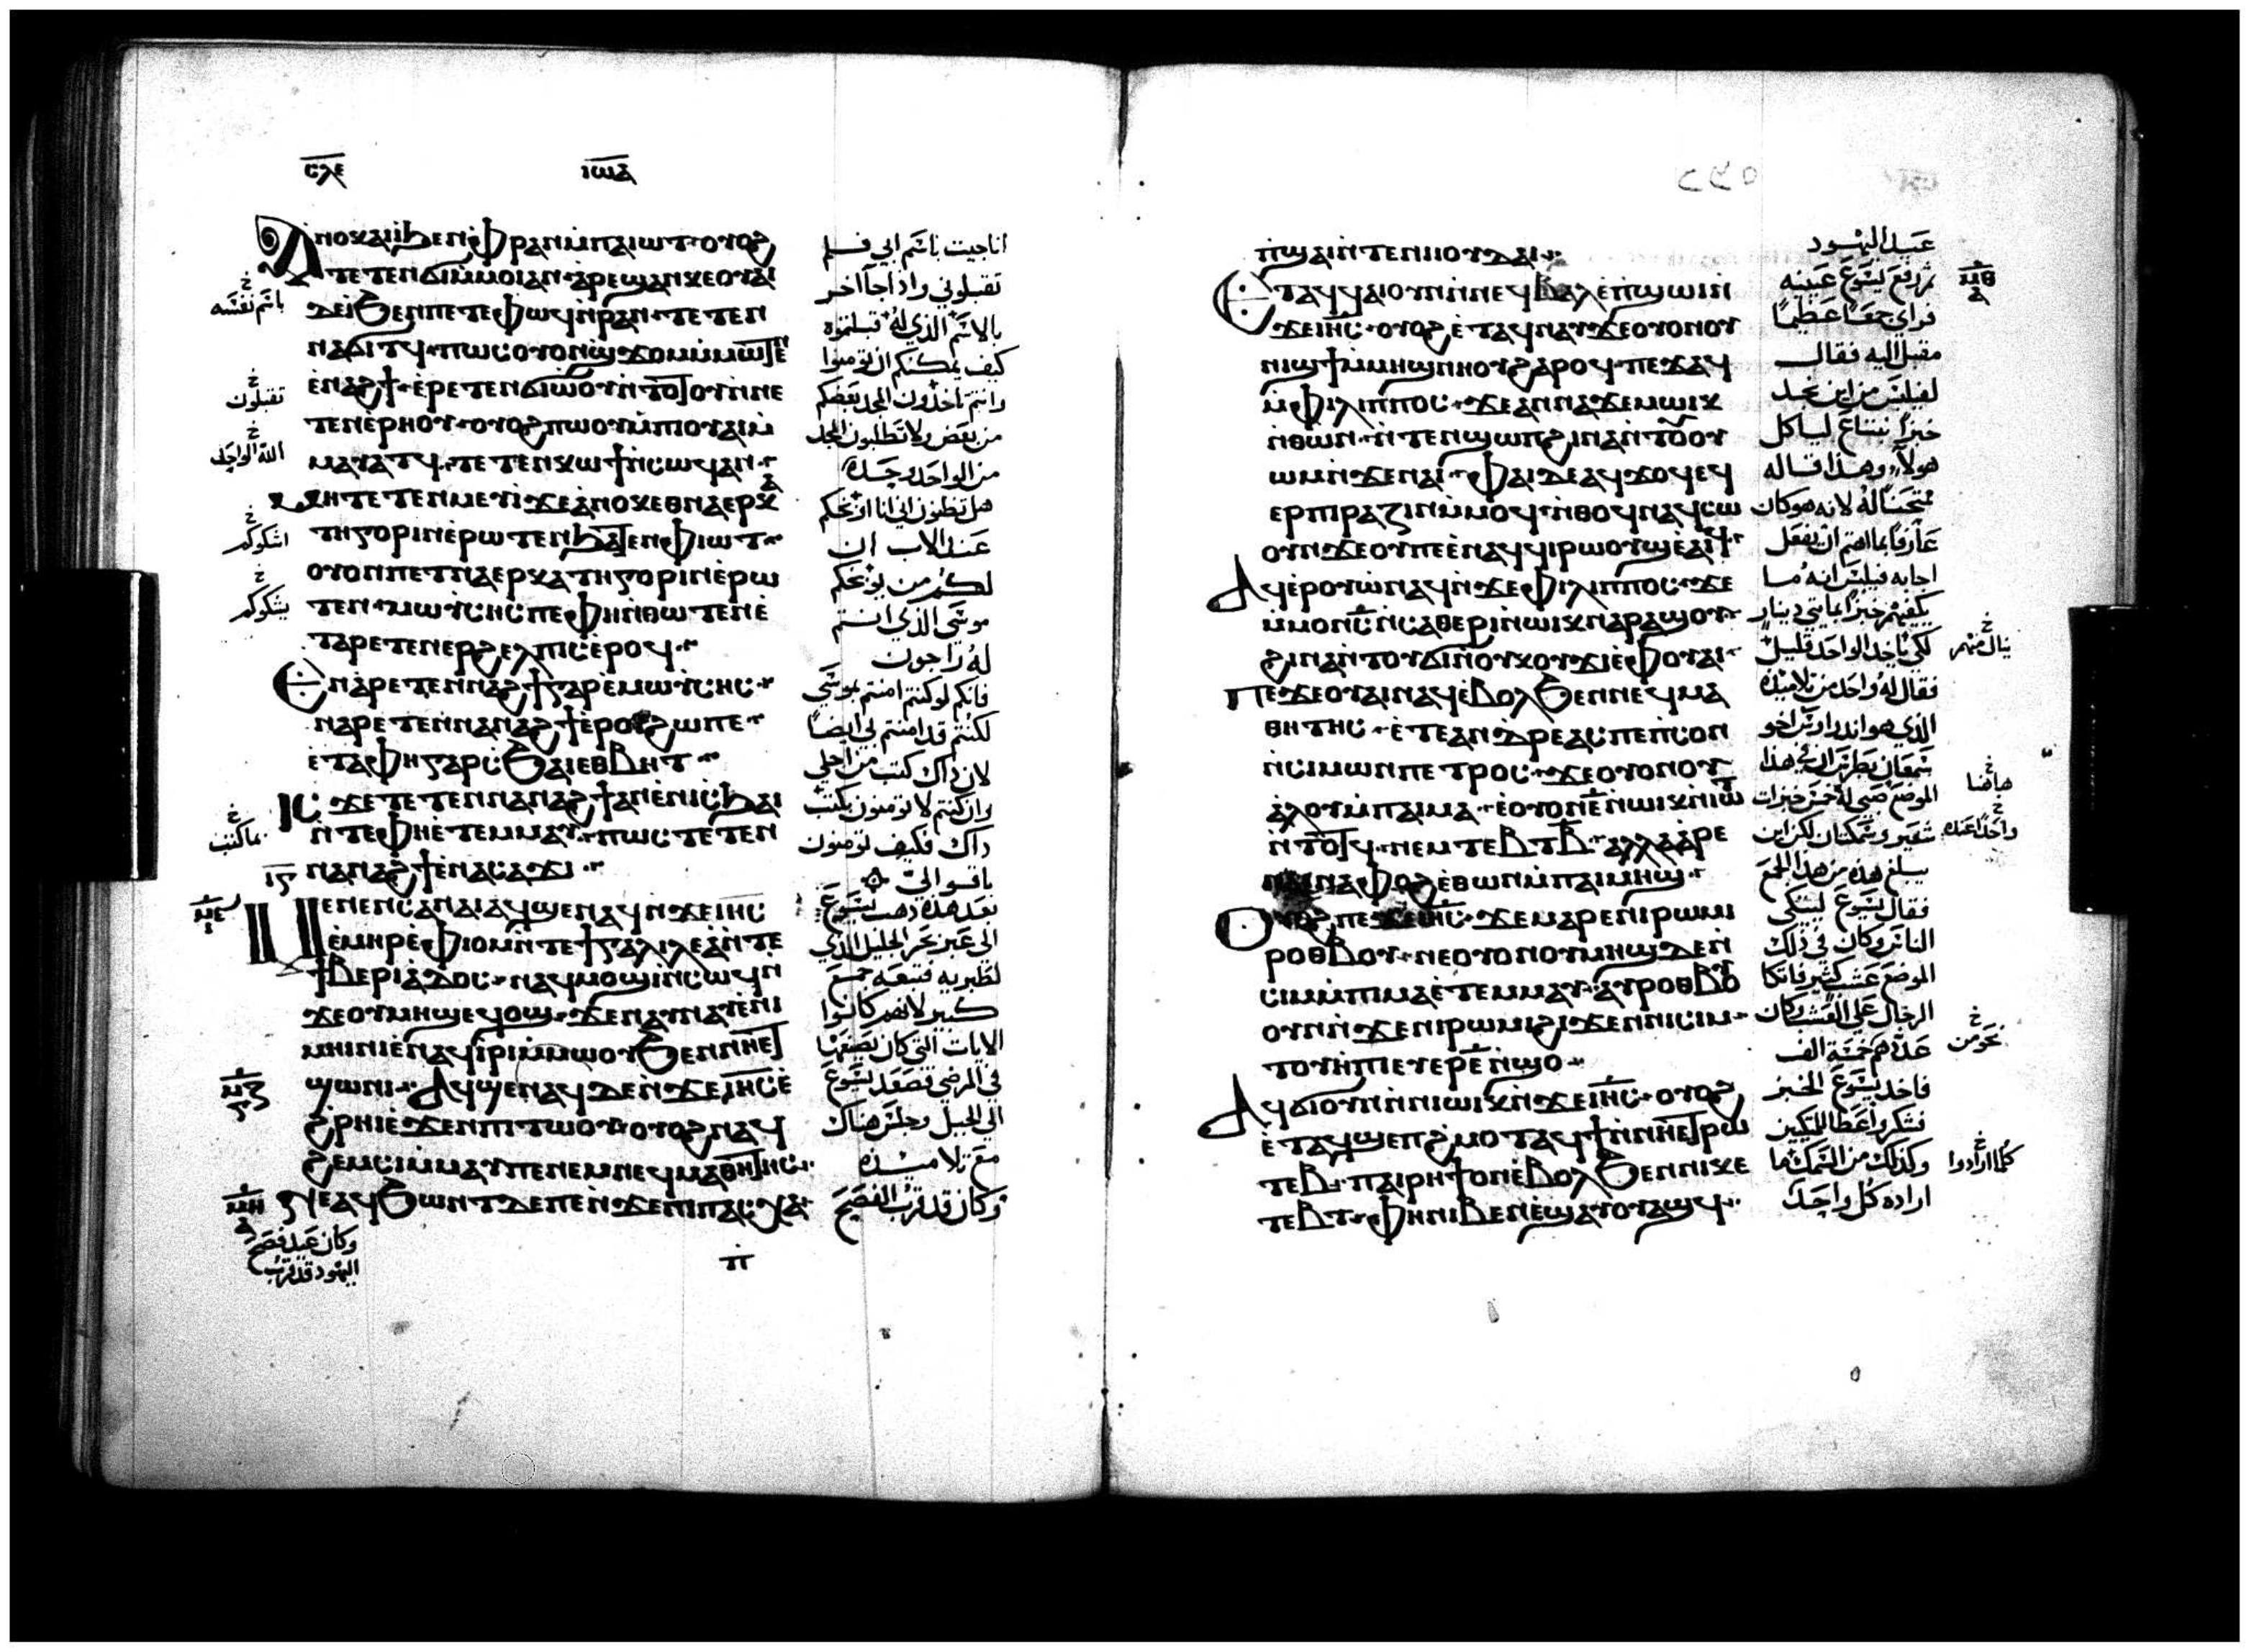 ⲥⲗⲉ
ⲓⲱⲁ
ⲁⲛⲟⲕ ⲁⲓⲓ̀ ϧⲉⲛ ⲫ̀ⲣⲁⲛ ⲙ̀ⲡⲁⲓⲱⲧ ⲟⲩⲟϩ
ⲧⲉⲧⲉⲛϭⲓ ⲙ̀ⲙⲟⲓ ⲁⲛ ⲁⲣⲉϣⲁⲛ ⲕⲉⲟⲩⲁⲓ
ⲇⲉ ⲓ̀ ϧⲉⲛ ⲡⲉⲧⲉⲫⲱϥ ⲛ̀ⲣⲁⲛ ⲧⲉⲧⲉⲛ
ⲛⲁϭⲓⲧϥ ⲡⲱⲥ ⲟⲩⲟⲛ ϣ̀ϫⲟⲙ ⲙ̀ⲙⲱⲧⲉⲛ
ⲉ̀ⲛⲁϩϯ ⲉ̀ⲣⲉⲧⲉⲛϭⲓⲱ̀ⲟⲩ ⲛ̀ⲧⲟⲧⲟⲩ ⲛ̀ⲛⲉ
ⲧⲉⲛⲉ̀ⲣⲏⲟⲩ ⲟⲩⲟϩ ⲡⲱⲟⲩ ⲙ̀ⲡⲓⲟⲩⲁⲓ ⲙ̀
ⲙⲁⲩⲁⲧϥ ⲧⲉⲧⲉⲛⲕⲱϯ ⲛ̀ⲥⲱϥ ⲁⲛ
ⲙⲏ ⲧⲉⲧⲉⲛⲙⲉⲩⲓ̀ ϫⲉ ⲁ̀ⲛⲟⲕ ⲉⲑⲛⲁⲉⲣⲕⲁ
ⲧⲏⲅⲟⲣⲓⲛ ⲉ̀ⲣⲱⲧⲉⲛ ϧⲁⲧⲉⲛ ⲫ̀ⲓⲱⲧ
ⲟⲩⲟⲛ ⲡⲉⲧⲛⲁⲉⲣⲕⲁⲧⲏⲅⲟⲣⲓⲛ ⲉ̀ⲣⲱ
ⲧⲉⲛ ⲙⲱⲩ̀ⲥⲏⲥ ⲡⲉ ⲫⲏ ⲛ̀ⲑⲱⲧⲉⲛ ⲉ̀
ⲧⲁⲣⲉⲧⲉⲛⲉⲣϩⲉⲗⲡⲓⲥ ⲉ̀ⲣⲟϥ
ⲉⲛⲁⲣⲉⲧⲉⲛⲛⲁϩϯ ⲅⲁⲣ ⲉ̀ⲙⲱⲩ̀ⲥⲏⲥ
ⲛⲁⲣⲉⲧⲉⲛⲛⲁⲛⲁϩϯ ⲉ̀ⲣⲟⲓ ϩⲱ ⲡⲉ
ⲉ̀ⲧⲁ ⲫⲏ ⲅⲁⲣ ⲥϧⲁⲓ ⲉⲑⲃⲏⲧ
ⲓⲥϫⲉ ⲧⲉⲧⲉⲛⲛⲁⲛⲁϩϯ ⲁⲛ ⲉ̀ⲛⲓⲥϧⲁⲓ
ⲛ̀ⲧⲉ ⲫⲏ ⲉ̀ⲧⲉⲙⲙⲁⲩ ⲡⲱⲥ ⲧⲉⲧⲉⲛ
ⲛⲁⲛⲁϩϯ ⲉ̀ⲛⲁⲥⲁϫⲓ
ⲓⲋ
ⲙⲉⲛⲉⲛⲥⲁ ⲛⲁⲓ ⲁϥϣⲉⲛⲁϥ ⲛ̀ϫⲉ ⲓⲏⲥ
ⲉ̀ⲙⲏⲣ ⲉ̀ⲫⲓⲟⲙ ⲛ̀ⲧⲉ ϯⲅⲁⲗⲓⲗⲉⲁ̀ ⲛ̀ⲧⲉ
ϯⲃⲉⲣⲓⲁⲇⲟⲥ ⲛⲁϥⲙⲟϣⲓ ⲛ̀ⲥⲱϥ ⲛ̀
ϫⲉ ⲟⲩⲙⲏϣ ⲉϥⲟϣ ϫⲉ ⲛⲁⲩⲛⲁⲩ ⲉ̀ⲛⲓ
ⲙⲏⲓⲛⲓ ⲉ̀ⲛⲁϥⲓ̀ⲣⲓ ⲙ̀ⲙⲱⲟⲩ ϧⲉⲛ ⲛⲏⲉⲧ
ϣⲱⲛⲓ ⲁϥϣⲉⲛⲁϥ ⲇⲉ ⲛ̀ϫⲉ ⲓⲏⲥ ⲉ̀
ϩⲣⲏⲓ ⲉ̀ϫⲉⲛ ⲡⲓⲧⲱⲟⲩ ⲟⲩⲟϩ ⲛⲁϥ
ϩⲉⲙⲥⲓ ⲙ̀ⲙⲁⲩ ⲡⲉ ⲛⲉⲙ ⲛⲉϥⲙⲁⲑⲏⲧⲏⲥ
ⲛⲉ ⲁϥϧⲱⲛⲧ ⲇⲉ ⲡⲉ ⲛ̀ϫⲉ ⲡⲓⲡⲁⲥⲭⲁ
ⲡ
انا جيت باسم ابي فلم
تقبلوني واذا جا آخر
بالاسم الذي له قبلتموه
كيف يمكنكم ان تومنوا
وانتم تاخذون المجد بعضكم
من بعض ولا تطلبون المجد
من الواحد وحده
هل تظنون اني انا اوبخكم
عند الاب ان
لكم من يوبخكم
موسى الذي انتم
له راجون
فانكم لو كنتم امنتم بموسى
لكنتم قد امنتم بي ايضا
لان ذاك كتب من اجلي
وان كنتم لا تومنون بكتب
ذاك فكيف تومنون
باقوالي
بعد هذه ذهب يسوع
الى عبر بحر الجليل الذي
لطبريه فتبعه جمع
كبير لانهم كانوا
الايات التي كان يصنعها
في المرضى فصعد يسوع
الى الجبل وجلس هناك
مع تلاميذه
وكان قد قرب الفصح
باسم نفسه
تقبلون
الله الواحد
اشكوكم
يشكوكم
بما كتب
ⲙⲉ
ⲙⲍ
ⲙⲏ
وكان عيد فصح
اليهود قد قرب
ⲡ̀ϣⲁⲓ ⲛ̀ⲧⲉ ⲛⲓⲓⲟⲩⲇⲁⲓ
ⲉⲧⲁϥϥⲁⲓ ⲟⲩⲛ ⲛ̀ⲛⲉϥⲃⲁⲗ ⲉ̀ⲡ̀ϣⲱⲓ ⲛ̀
ϫⲉ ⲓⲏⲥ ⲟⲩⲟϩ ⲉ̀ⲧⲁϥⲛⲁⲩ ϫⲉ ⲟⲩⲟⲛ ⲟⲩ
ⲛⲓϣϯ ⲙ̀ⲙⲏϣ ⲛⲏⲟⲩ ϩⲁⲣⲟϥ ⲡⲉϫⲁϥ
ⲙ̀ⲫⲓⲗⲓⲡⲡⲟⲥ ϫⲉ ⲁⲛⲛⲁϫⲉⲙ ⲱⲓⲕ
ⲛ̀ⲑⲱⲛ ⲛ̀ⲧⲉⲛϣⲱⲡ ϩⲓⲛⲁ ⲛ̀ⲧⲟⲩⲟⲩ
ⲱⲙ ⲛ̀ϫⲉ ⲛⲁⲓ ⲫⲁⲓ ⲇⲉ ⲁϥϫⲟϥ ⲉϥ
ⲉⲣⲡⲓⲣⲁⲍⲓⲛ ⲙ̀ⲙⲟϥ ⲛ̀ⲑⲟϥ ⲛⲁϥⲥⲱ
ⲟⲩⲛ ϫⲉ ⲟⲩ ⲡⲉ ⲉ̀ⲛⲁϥϥⲓⲣⲱⲟⲩϣ ⲉ̀ⲁⲓϥ
ⲁϥⲉⲣⲟⲩⲱ̀ ⲛⲁϥ ⲛ̀ϫⲉ ⲫⲓⲗⲓⲡⲡⲟⲥ ϫⲉ
ⲙ̀ⲙⲟⲛ ⲥ̅ ⲛ̀ⲥⲁⲑⲉⲣⲓ ⲛ̀ⲱⲓⲕ ⲛⲁⲣⲁϣⲟⲩ
ϩⲓⲛⲁ ⲛ̀ⲧⲟⲩϭⲓ ⲛ̀ⲟⲩⲕⲟⲩϫⲓ ⲉ̀ⲫⲟⲩⲁⲓ
ⲡⲉϫⲉ ⲟⲩⲁⲓ ⲛⲁϥ ⲉ̀ⲃⲟⲗ ϧⲉⲛ ⲛⲉϥⲙⲁ
ⲑⲏⲧⲏⲥ ⲉ̀ⲧⲉ ⲁⲛⲇⲣⲉⲁⲥ ⲡⲉ ⲡ̀ⲥⲟⲛ
ⲛ̀ⲥⲓⲙⲱⲛ ⲡⲉⲧⲣⲟⲥ ϫⲉ ⲟⲩⲟⲛ ⲟⲩ
ⲁ̀ⲗⲟⲩ ⲙ̀ⲡⲁⲓⲙⲁ ⲉ̀ⲟⲩⲟⲛ ⲉ̅ ⲛ̀ⲱⲓⲕ ⲛ̀ⲓⲱⲧ
ⲛ̀ⲧⲟⲧϥ ⲛⲉⲙ ⲧⲉⲃⲧ ⲃ̅ ⲁⲗⲗⲁ ⲁⲣⲉ
ⲛⲁⲓ ⲛⲁⲫⲟϩ ⲉ̀ⲑⲱⲛ ⲙ̀ⲡⲁⲓⲙⲏϣ
ⲟⲩⲟϩ ⲡⲉϫⲉ ⲓⲏⲥ ϫⲉ ⲙⲁⲣⲉ ⲛⲓⲣⲱⲙⲓ
ⲣⲟⲑⲃⲟⲩ ⲛⲉ ⲟⲩⲟⲛ ⲟⲩⲙⲏϣ ⲇⲉ ⲛ̀
ⲥⲓⲙ ⲙ̀ⲡⲓⲙⲁ ⲉ̀ⲧⲉⲙⲙⲁⲩ ⲁⲩⲣⲟⲑⲃⲟⲩ
ⲟⲩⲛ ⲛ̀ϫⲉ ⲛⲓⲣⲱⲙⲓ ϩⲓϫⲉⲛ ⲛⲓⲥⲓⲙ
ⲧⲟⲩⲏⲡⲓ ⲉⲩⲉⲣ ⲉ̅ ⲛ̀ϣⲟ
ⲁϥϭⲓ ⲟⲩⲛ ⲛ̀ⲛⲓⲱⲓⲕ ⲛ̀ϫⲉ ⲓⲏⲥ ⲟⲩⲟϩ
ⲉ̀ⲧⲁϥϣⲉⲡϩ̀ⲙⲟⲧ ⲁϥϯ ⲛ̀ⲛⲏⲉⲧⲣⲱ
ⲧⲉⲃ ⲡⲁⲓⲣⲏϯ ⲟⲛ ⲉ̀ⲃⲟⲗ ϧⲉⲛ ⲛⲓⲕⲉ
ⲧⲉⲃⲧ ⲫⲏ ⲛⲓⲃⲉⲛ ⲉ̀ϣⲁⲩⲟⲩⲁϣϥ
عيد اليهود
ثم رفع يسوع عينيه
فراى جمعا عظيما
مقبل اليه فقال
لفيلبس من اين نجد
خبزا نبتاع لياكل
هولا وهذا قاله
ممتحنا له لانه هو كان
عارفا بما اهتم ان يفعل
اجابه فيلبس انه ما
يكفيهم خبزا بمايتي دينار
لكي ياخذ الواحد قليل
فقال له واحد من تلاميذه
الذي هو اندراوس اخو
سمعان بطرس ان في هذا
الموضع صبي له خمس خبزات
شعير وسمكتان لكن اين
يبلغ هذه من هذا الجمع
فقال يسوع ليتكي
الناس وكان في ذلك
الموضع عشب كثير فاتكا
الرجال على العشب وكان
عددهم خمسة الف
فاخذ يسوع الخبز
فشكر واعطا المتكين
وكذلك من السمك ما
اراده كل واحد
ⲙⲑ
ينال منهم
هاهنا
نحو من
كلما ارادوا